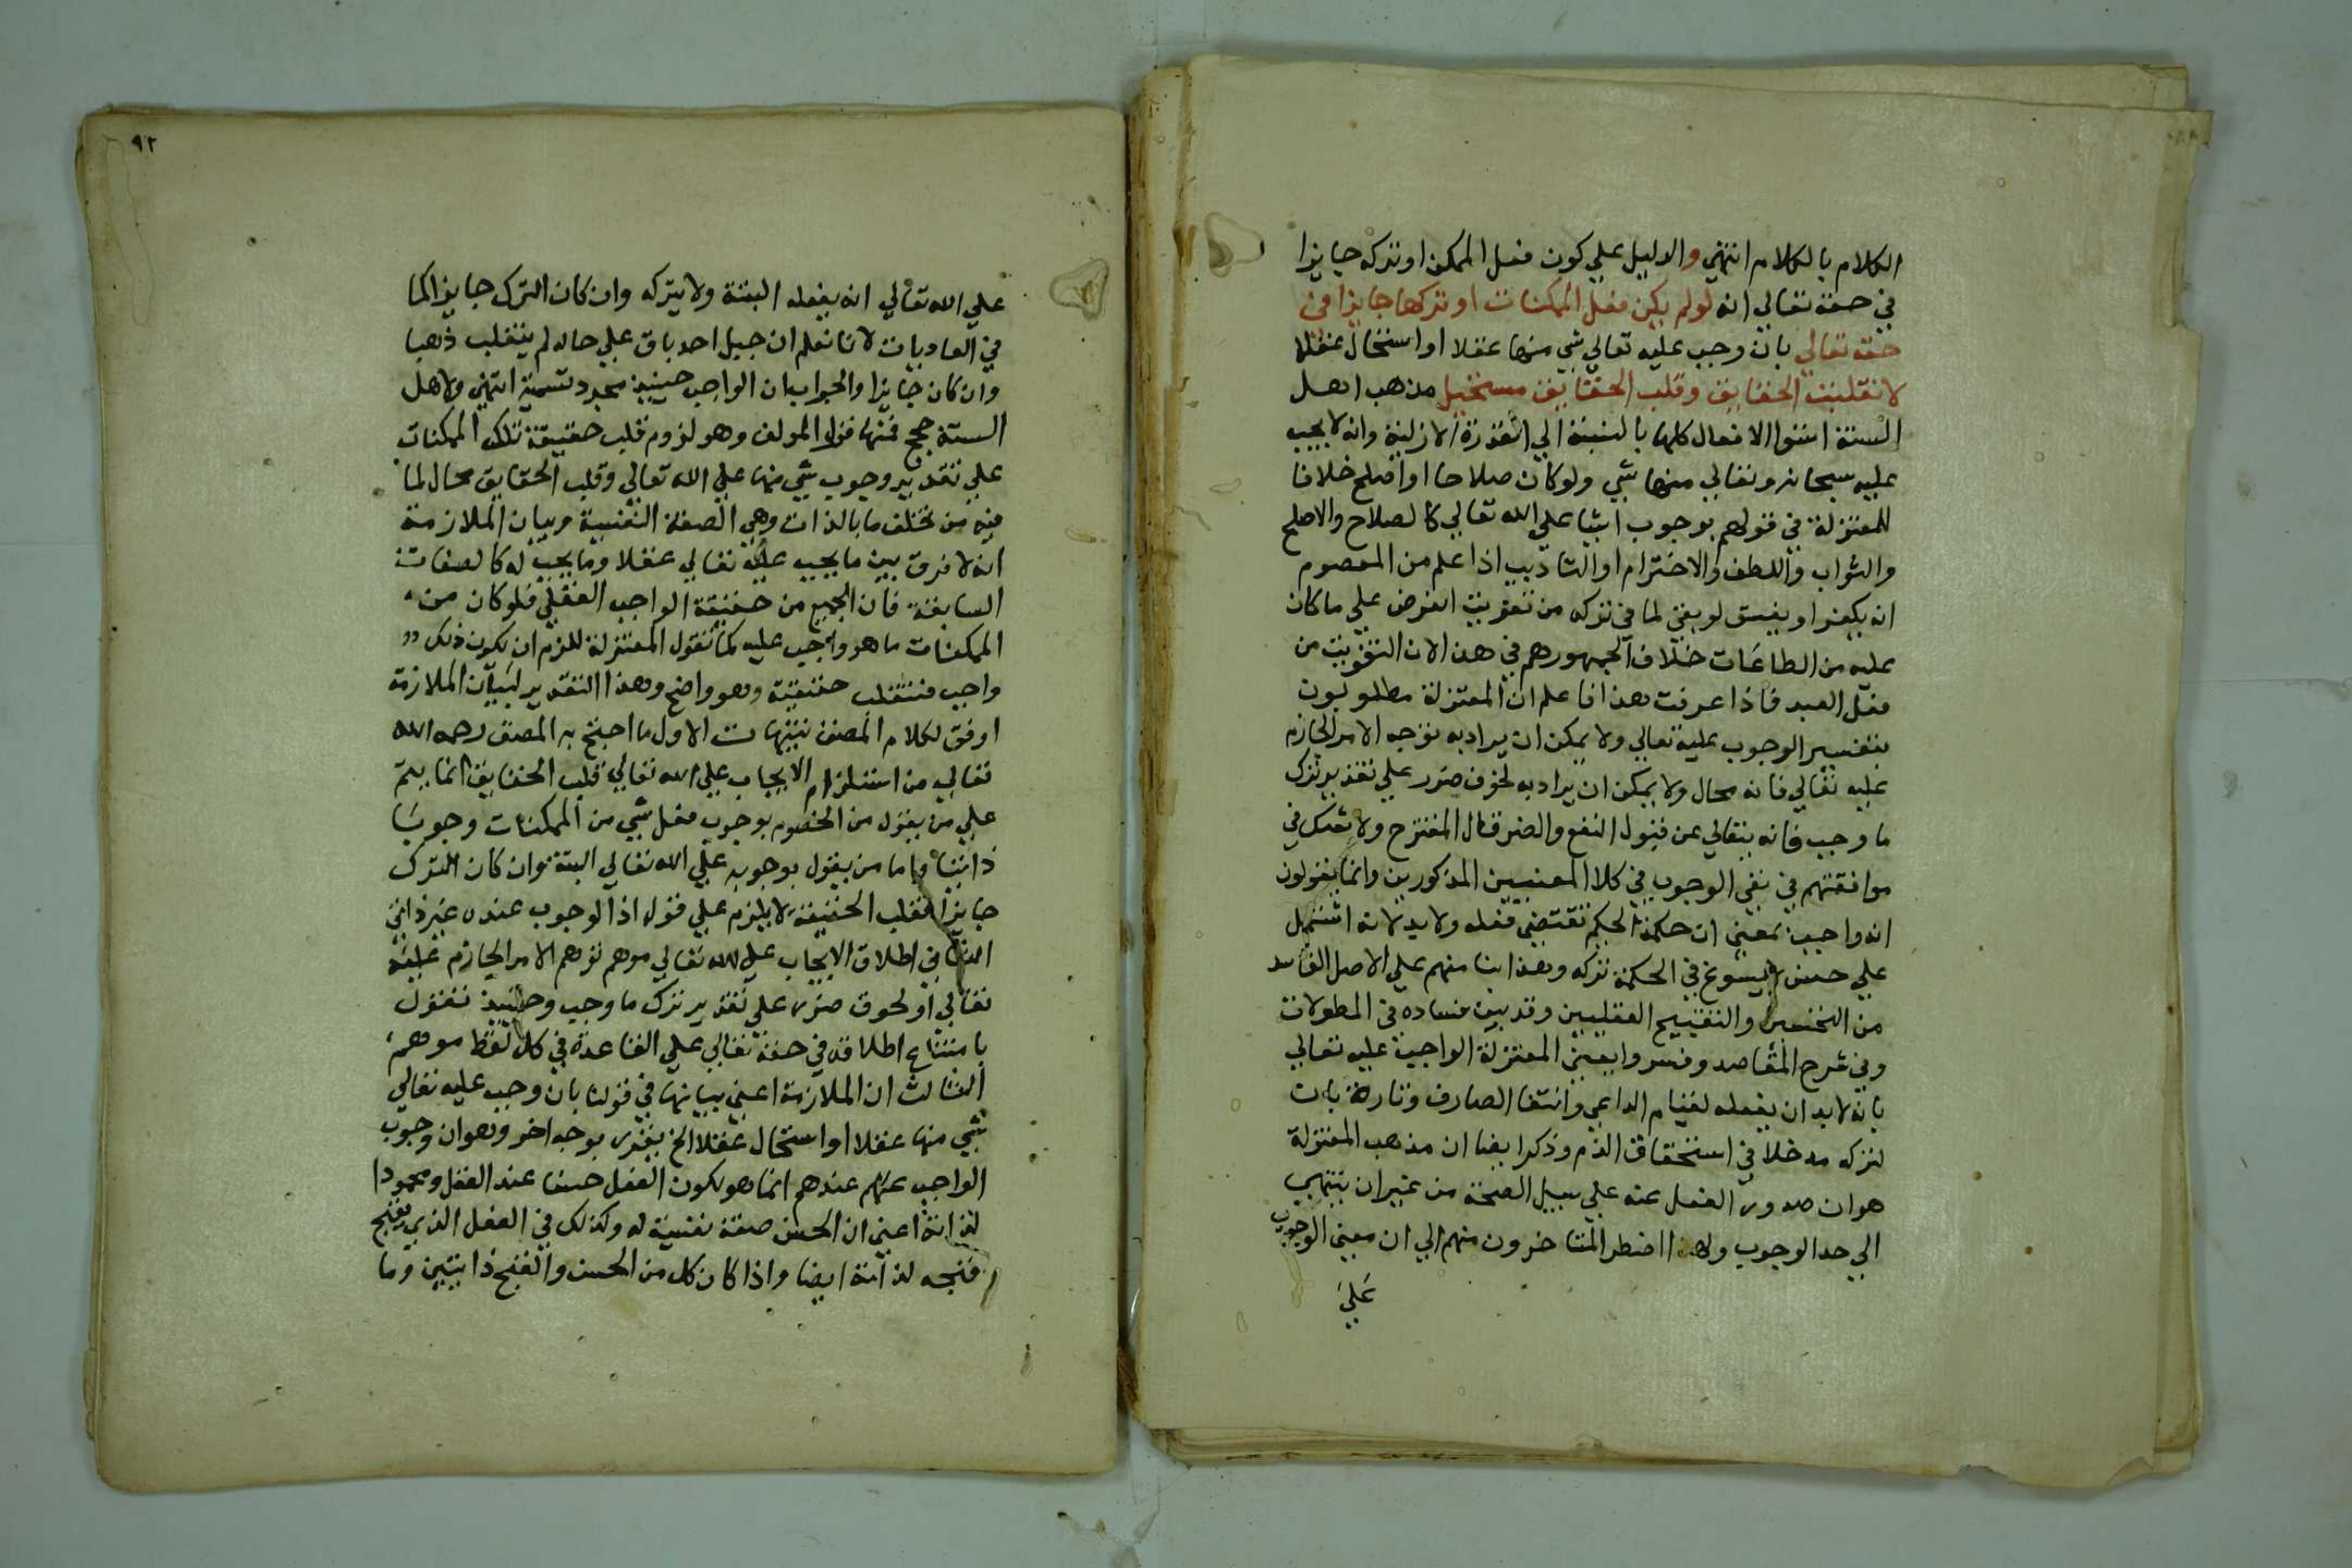 الكلام بالكلام انتهي والدليل علي كون فعل الممكن او تركه جايزا
في حقه تعالي انه لو لم يكن فعل الممكنات او تركها جايزا في
حقه تعالي بان وجب عليه تعالي شي منها عقلا او استحال عقلا
لانقلبت الحقايق وقلب الحقايق مستحيل مذهب اهل
السنة استوا الافعال كلها بالنسبة الي القدرة الازلية وانه لا يجب
عليه سبحانه وتعالي منها شي ولو كان صلاحا او اصلح خلافا
للمعتزلة في قولهم بوجوب اشيا علي الله تعالي كالصلاح والاصلح
والثواب واللطف والاخترام او التاديب اذا علم من المعصوم
انه يكفر او يفسق لو بقي لما في تركه من تفويت الغرض علي ما كان
عليه من الطاعات خلاف الجمهورهم في هذا لان التفويت من
فعل العبد فاذا عرفت هذا فاعلم ان المعتزلة مطلوبون
بتفسير الوجوب عليه تعالي ولا يمكن ان يراد به توجه الامر الجازم
عليه تعالي فانه محال ولا يمكن ان يراد به لحوق ضرر علي تقدير ترك
ما وجب فانه يتعالي عن قبول النفع والضر قال المقترح ولا شك في
موافقتهم في نفي الوجوب في كلا المعنيين المذكورين وانما يقولون
انه واجب بمعني ان حكمة الحكيم تقتضي فعله ولا بد لانه اشتمل
علي حسن لا يسوغ في الحكمة تركه وهذا بنا منهم علي الاصل الفاسد
من التحسين والتقبيح العقليين وقد بين فساده في المطولات
وفي شرح المقاصد وفسروا يعني المعتزلة الواجب عليه تعالي
بانه لا بد ان يفعله لقيام الداعي وانتفا الصارف وتارة بان
لتركه مدخلا في استحقاق الذم وذكر ايضا ان مذهب المعتزلة
هو ان صدور الفعل عنه علي سبيل الصحة من غير ان ينتهي
الي حد الوجوب ولهذا اضطر المتاخرون منهم الي ان معني الوجوب
علي
٩٢
علي الله تعالي انه يفعله البتة ولا يتركه وان كان الترك جايزا كما
في العاديات لانا نعلم ان جبل احد باق علي حاله لم ينقلب ذهبا
وان كان جايزا والجواب ان الواجب حينيذ مجرد تسمية انتهي ولاهل
السنة حجج فمنها قول المولف وهو لزوم قلب حقيقة تلك الممكنات
علي تقدير وجوب شي منها علي الله تعالي وقلب الحقايق محال لما
فيه من تخلف ما بالذات وهي الصفة النفسية وبيان الملازمة
انه لا فرق بين ما يجب عليه تعالي عقلا وما يجب له كالصفات
السابقة فان الجميع من حقيقة الواجب العقلي فلو كان من
الممكنات ما هو واجب عليه كما تقول المعتزلة للزم ان يكون ذلك
واجب فتنقلب حقيقته وهو واضح وهذا التقدير لبيان الملازمة
اوفق لكلام المصنف تنبيهات الاول ما احتج به المصنف رحمه الله
تعالي من استلزام الايجاب علي الله تعالي قلب الحقايق انما يتم
علي من يقول من الخصوم بوجوب فعل شي من الممكنات وجوبا
ذاتيا واما من يقول بوجوبه علي الله تعالي البتة وان كان الترك
جايزا فقلب الحقيقة لا يلزم علي قوله اذ الوجوب عنده غير ذاتي
الثاني اطلاق الايجاب علي الله تعالي موهم توهم الامر الجازم عليه
تعالي او لحوق ضرر علي تقدير ترك ما وجب وحينيذ فنقول
بامتناع اطلاقه في حقه تعالي علي القاعدة في كل لفظ موهم
الثالث ان الملازمة اعني بيانها في قولنا بان وجب عليه تعالي
شي منها عقلا او استحال عقلا الخ يقرر بوجه اخر وهو ان وجوب
الواجب عندهم انما هو لكون الفعل حسنا عند العقل ومحمودا
لذاته اعني ان الحسن صفة نفسية له وكذلك في الفعل الذي يقبح
فقبحه لذاته ايضا واذا كان كل من الحسن والقبح ذاتيين وما